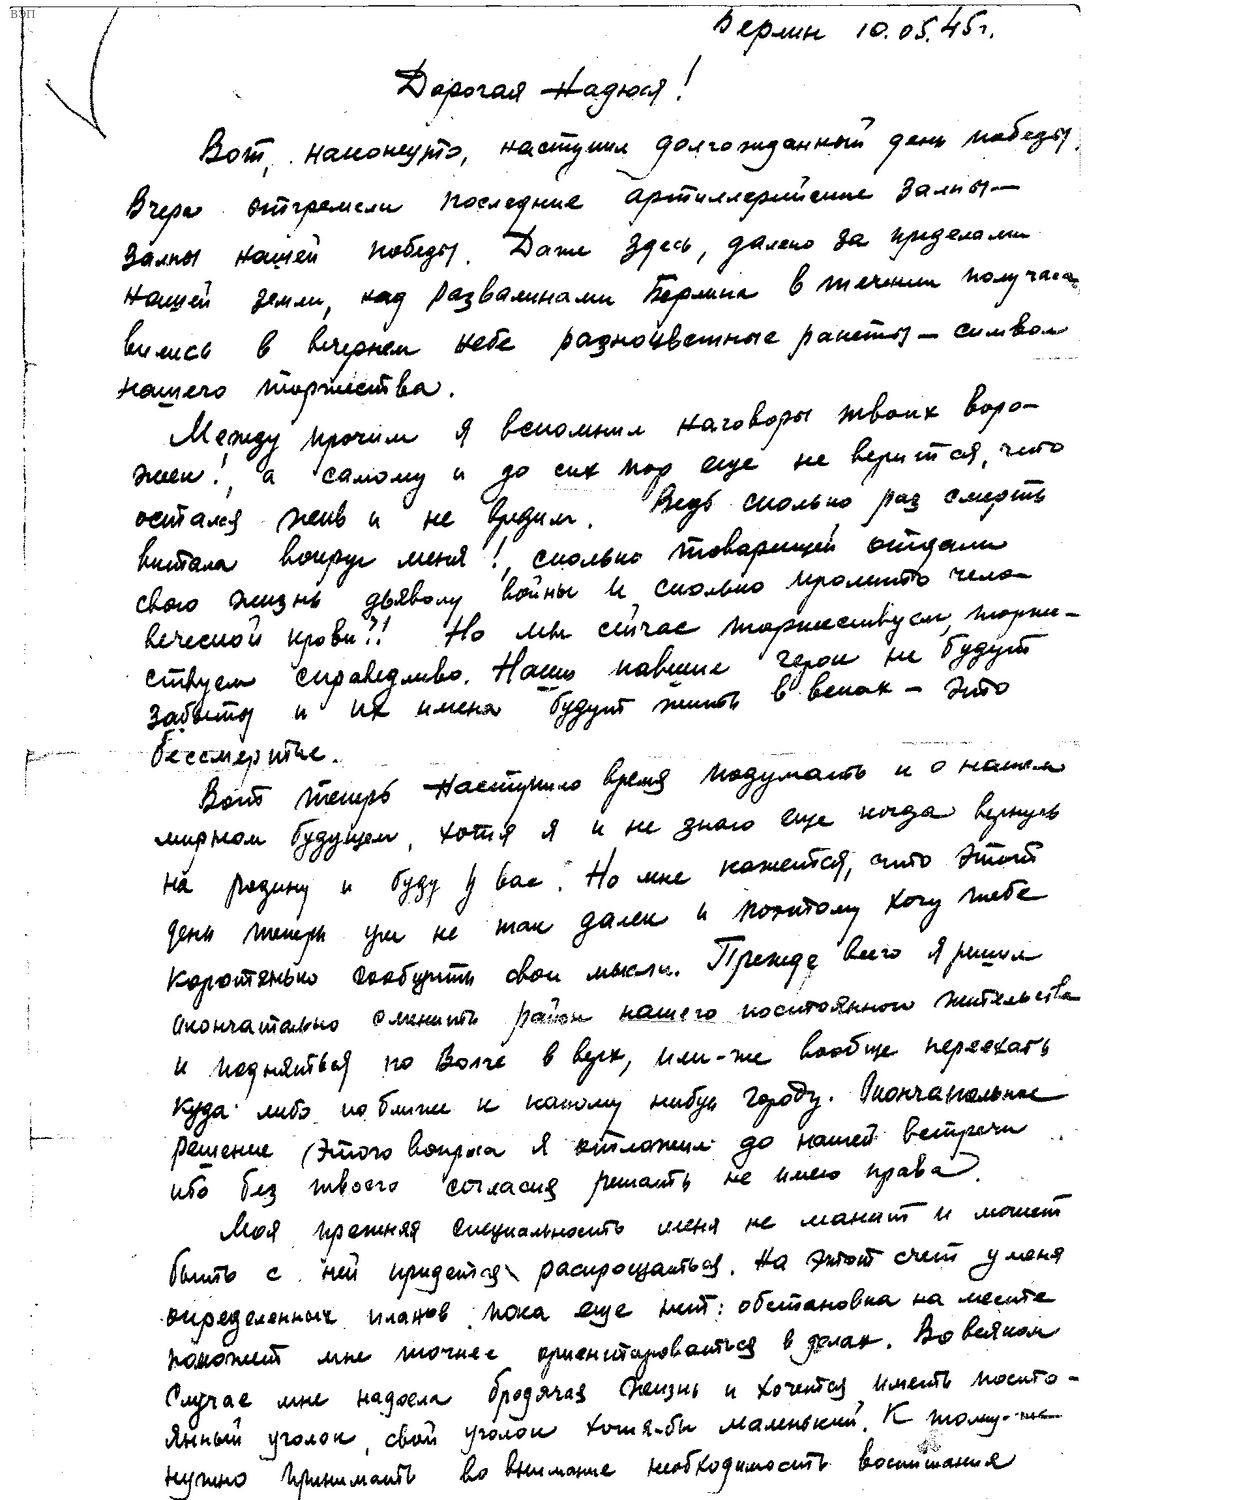 ВЭП
Берлин 10.05.45г.
Дорогая Надюся!
Вот, наконец-то, наступил долгожданный день победы.
Вчера отгремели последние артиллерийские залпы —
залпы нашей победы. Даже здесь, далеко за пределами
нашей земли, над развалинами Берлина в течении получаса
вились в вечернем небе разноцветные ракеты — символ
нашего торжества.
Между прочим я вспомнил наговоры твоих воро-
жеи!, а самому и до сих пор еще не верится, что
остался жив и не вредим. Ведь сколько раз смерть
витала вокруг меня!, сколько товарищей отдали
свою жизнь дьяволу войны и сколько пролито чело-
веческой крови?! Но мы сейчас торжествуем, торже-
ствуем справедливо. Наши павшие герои не будут
забыты и их имена будут жить в веках — это
бессмертие.
Вот теперь наступило время подумать и о нашем
мирном будущем, хотя я и не знаю еще когда вернусь
на родину и буду у вас. Но мне кажется, что этот
день теперь уж не так далек и поэтому хочу тебе
коротенько сообщить свои мысли. Прежде всего я решил
окончательно сменить район нашего постоянного жительства
и подняться по Волге в верх, или-же вообще переехать
куда либо по ближе к какому нибудь городу. Окончательное
решение этого вопроса я отложил до нашей встречи
ибо без твоего согласия решать не имею права.
Моя прежняя специальность меня не манит и может
быть с ней придется распрощаться. На этот счет у меня
определенных планов пока еще нет: обстановка на месте
поможет мне точнее ориентироваться в делах. Во всяком
случае мне надоела бродячая жизнь и хочется иметь посто-
янный уголок, свой уголок хотя-бы маленький. К тому-же
нужно принимать во внимание необходимость воспитания